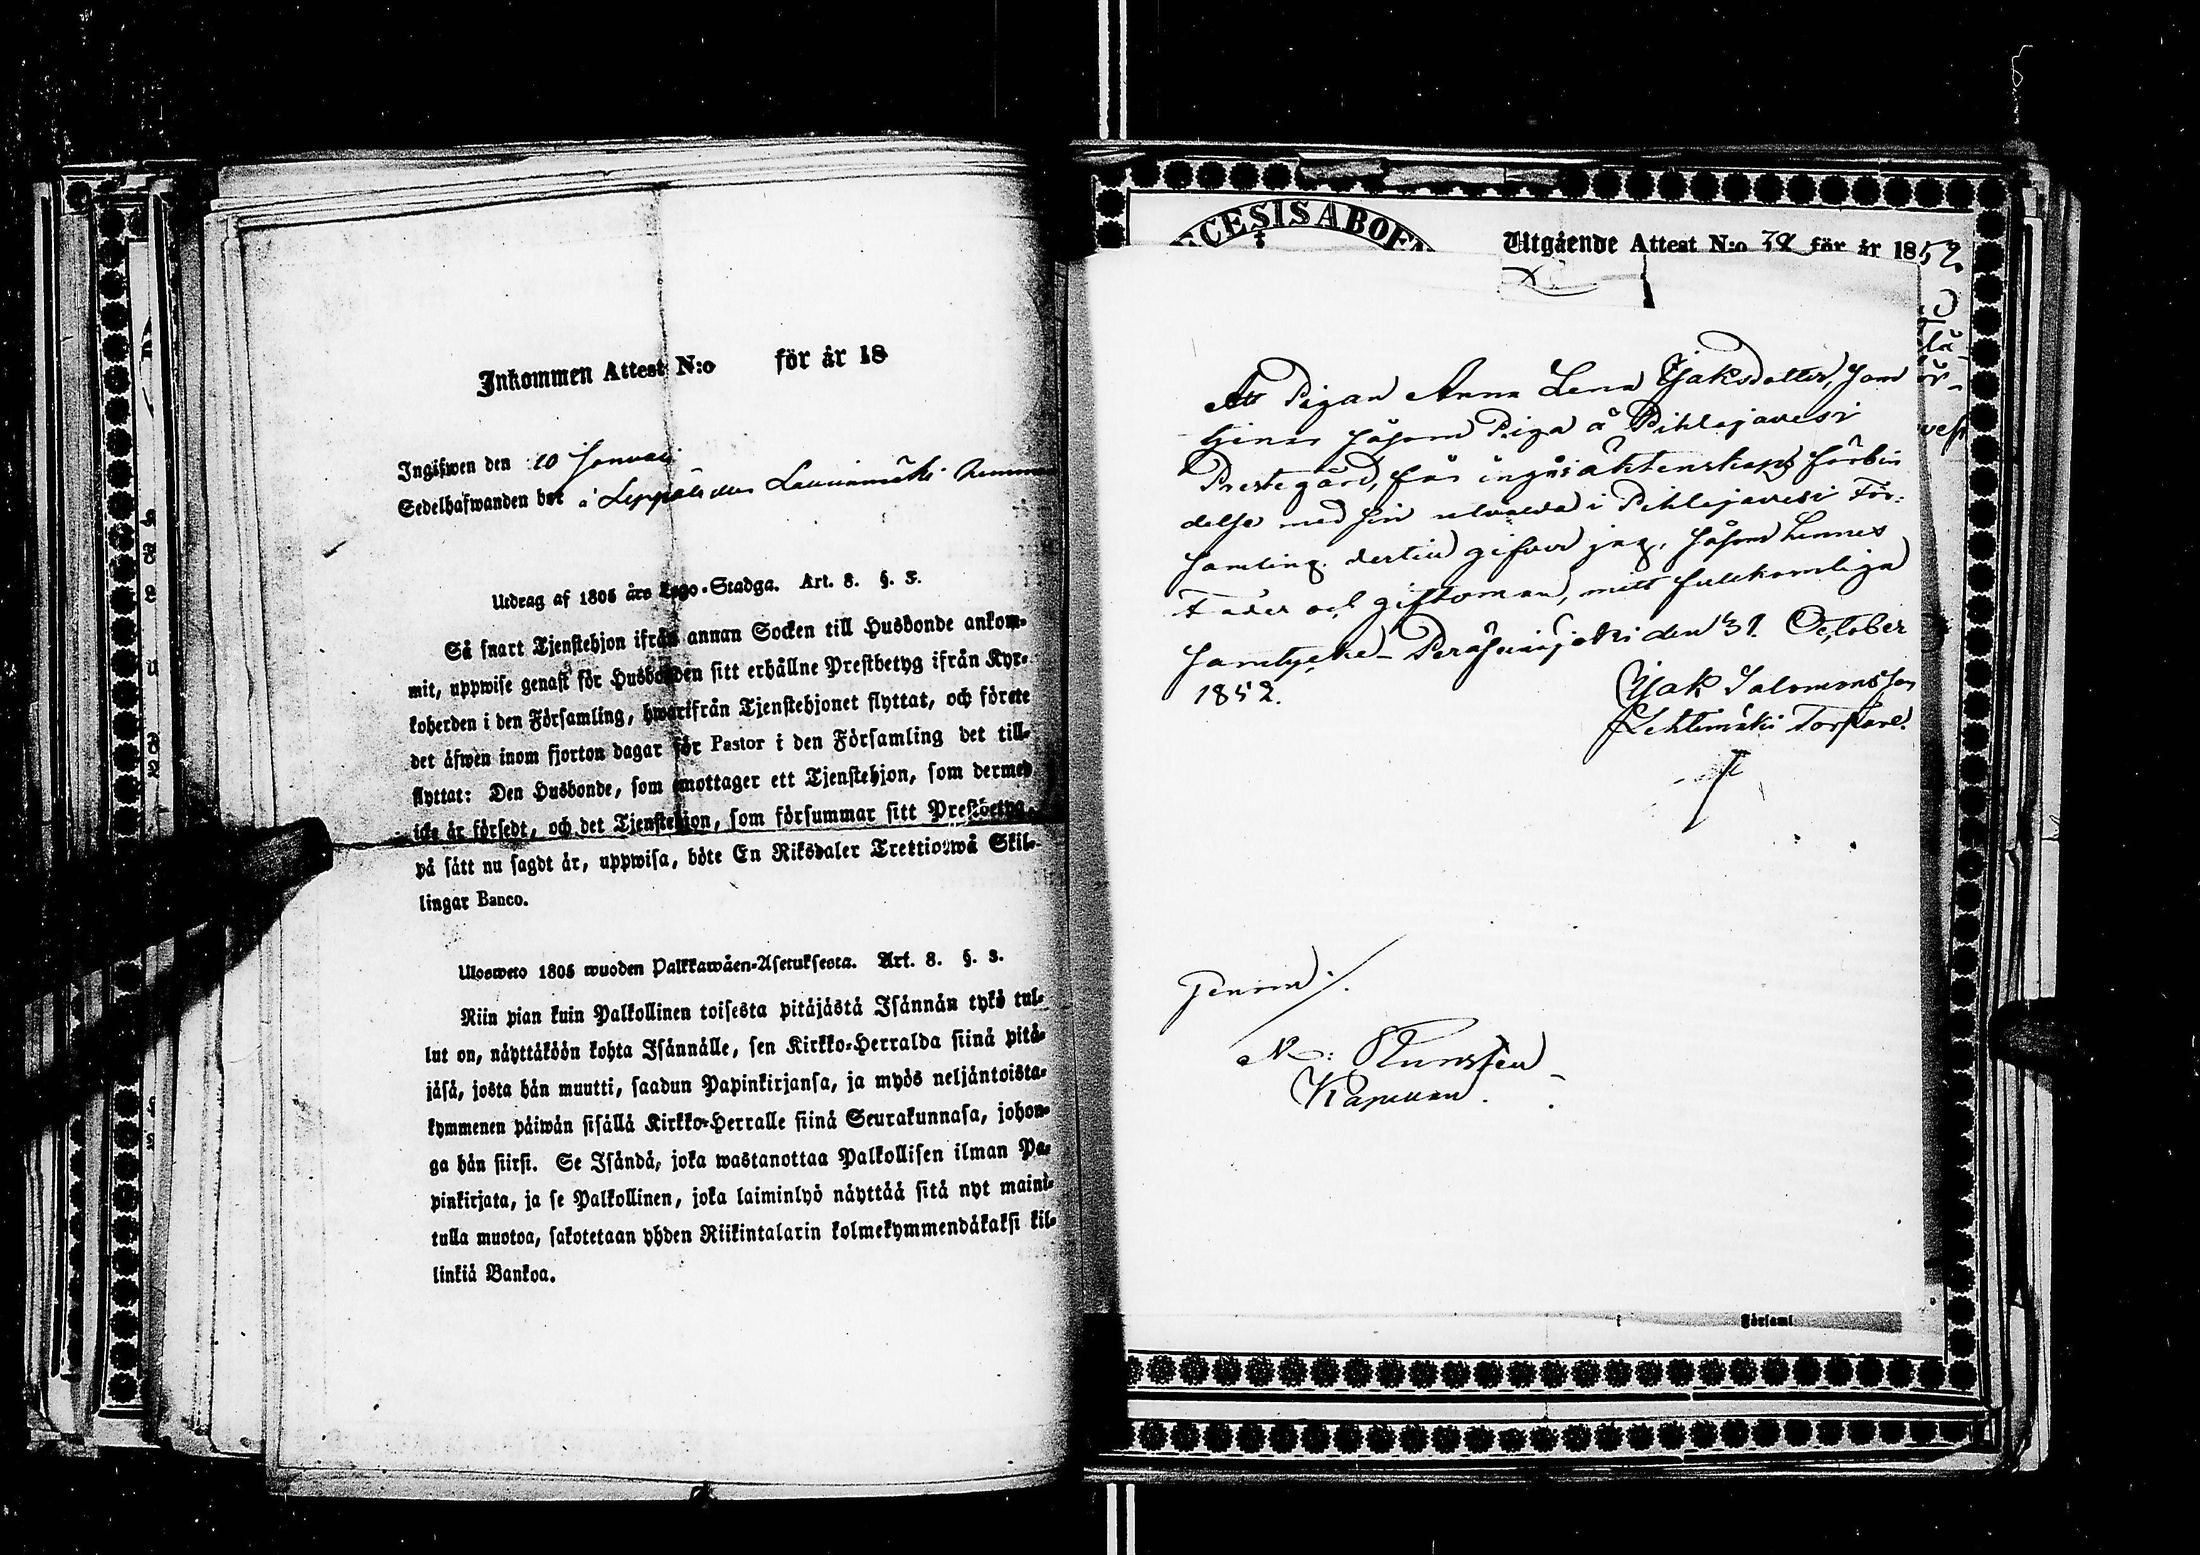 Inkommen Attest N:o för år 18
Ingifwen den 10 Januari
Sedelhafwanden bor å Leppälä Lauinmäki hemman
Utdrag af 1805 års Lego-Stadga. Art. 8. §. 3.
Så snart Tjenstehjon ifrån annan Socken till Husbonde ankom-
mit, uppwise genast för Husbonden sitt erhållne Prestbetyg ifrån Kyr-
koherden i den Församling, hwarifrån Tjenstehjonet flyttat, och förete
det äfwen inom fjorton dagar för Pastor i den Församling det till-
flyttat: Den Husbonde, som emottager ett Tjenstehjon, som dermed
icke är försedt, och det Tjenstehjon, som försummar sitt Prestbetyg,
på sätt nu sagdt är, uppwisa, böte En Riksdaler Trettiotwå Skil-
lingar Banco.
Ulosweto 1805 wuoden Palkkawäen-Asetuksesta. Art. 8. §. 3.
Niin pian kuin Palkollinen toisesta pitäjästä Isännän tykö tul-
lut on, näyttäköön kohta Isännälle, sen Kirkko-Herralda siinä pitä-
jäsä, josta hän muutti, saadun Papinkirjansa, ja myös neljäntoista-
kymmenen päiwän sisällä Kirkko-Herralle siinä Seurakunnasa, johon-
ga hän siirsi. Se Isändä, joka wastanottaa Palkollisen ilman Pa-
pinkirjata, ja se Palkollinen, joka laiminlyö näyttää sitä nyt maini-
tulla muotoa, sakotetaan yhden Riikintalarin kolmekymmendäkaksi kil-
linkiä Bankoa.
ECESIS ABOEN
Utgående Attest N:o 38 för år 1852.
Att Pigan Anna Lena Isaksdotter, som
tjenar såsom Piga å Pihlajavesi
Prestegård, får ingå äktenskaps förbin
delse med sin utvalda i Pihlajavesi För-
samling. dertill gifver jag, såsom hennes
Fader och giftoman, mitt fullkomliga
samtycke – Peräseinäjoki den 31. October
1852.
Isak Salomonsson
Lehtimäki Torpare.
Kapellan.
Församl.